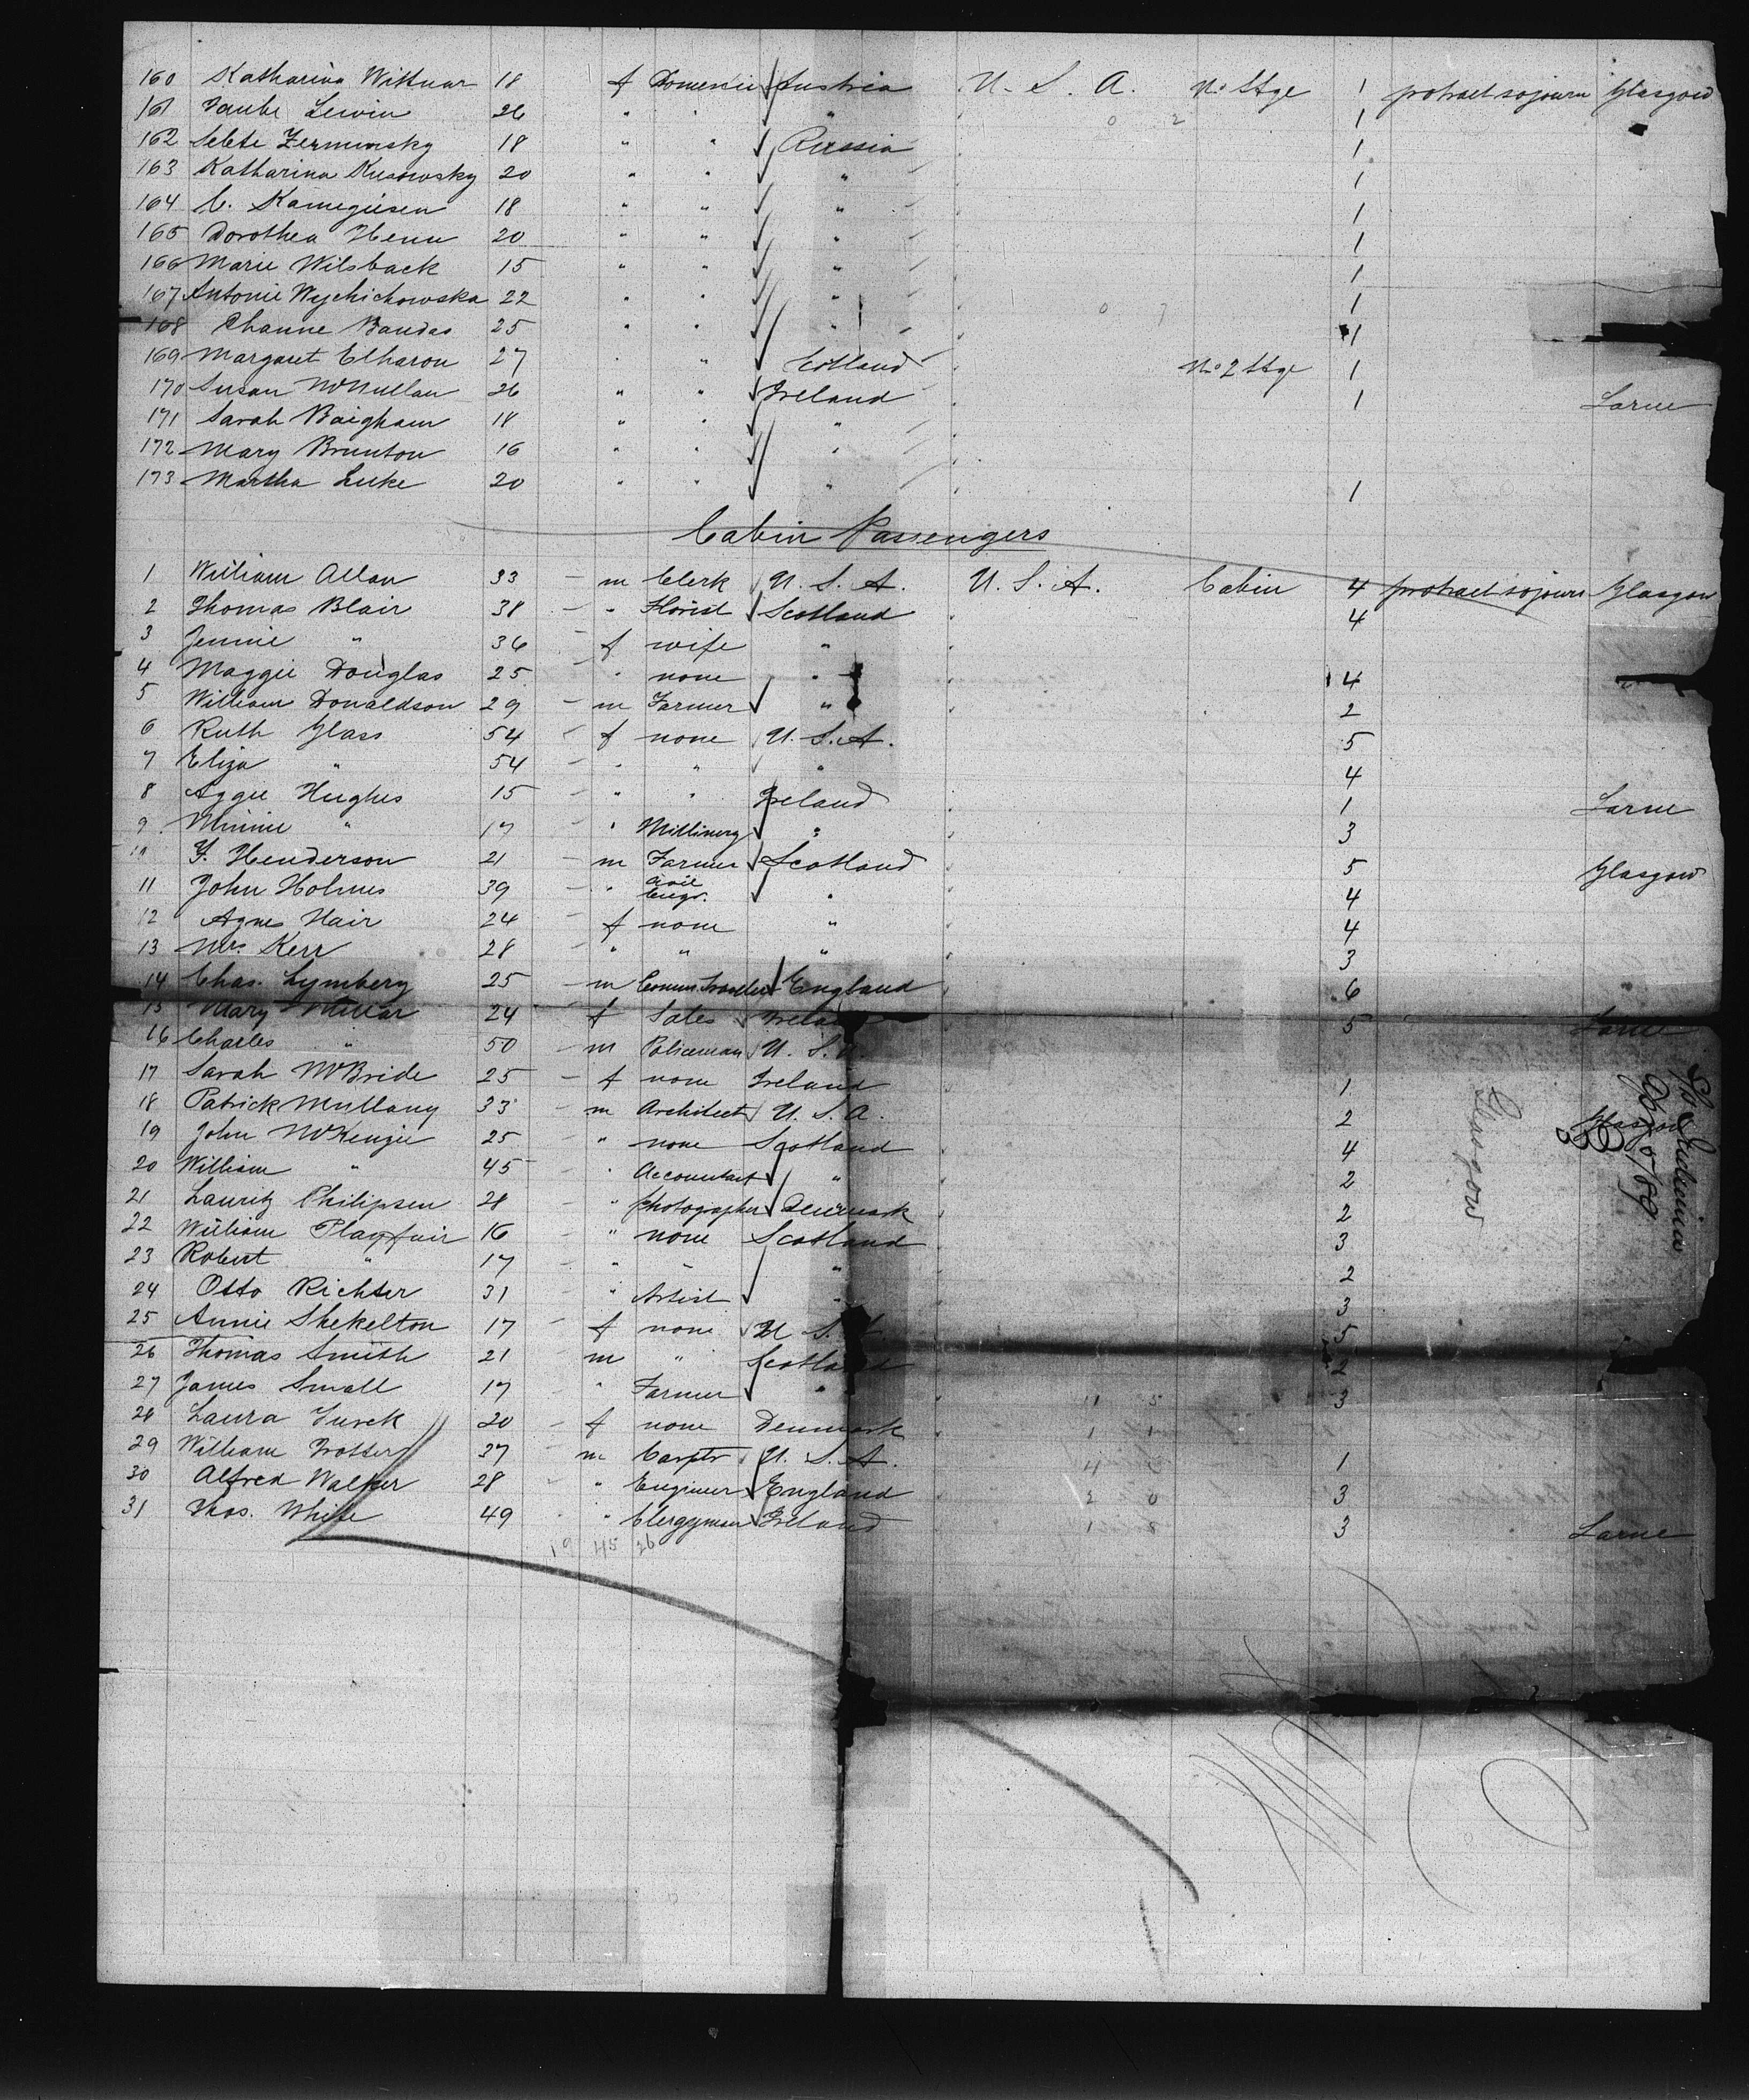 160 Katharina Wittnar 18 f Domestic Austria U. S. A. No Stge 1 protract sojourn Glasgow
161 Taube Lewin 26 " " " 1
162 Selete 18 " " Russia 1
163 Katharina Kusowsky 20 " " " 1
164 C. Kamegiesen 18 " " " 1
165 Dorothea Henn 20 " " " 1
166 Marie Wilsback 15 " " " 1
167 Antonie Wychichowska 22 " " " 1
168 Channe Bandas 25 " " " 1
169 Margaret Elharon 27 " " Scotland No 2 Stge 1
170 Susan McMullan 26 " " Ireland 1 Larne
171 Sarah Baigham 18 " " "
172 Mary Brunton 16 " " "
173 Martha Luke 20 " " " 1
Cabin Passengers
1 William Allan 33 m Clerk U. S. A. U. S. A. Cabin 4 protract sojourn Glasgow
2 Thomas Blair 38 " Florist Scotland 4
3 Jennie " 36 f wife "
4 Maggie Douglas 25 " none " 4
5 William Donaldson 29 m Farmer " 2
6 Ruth Glass 54 f none U. S. A. 5
7 Eliza " 54 " " " 4
8 Aggie Hughes 15 " " Ireland 1 Larne
9 Minnie " 17 " Millinery " 3
10 Y. Henderson 21 m Farmer Scotland 5 Glasgow
11 John Holmes 39 " Civil Engr. " 4
12 Agnes Hair 24 f none " 4
13 Mrs. Kerr 28 " " " 3
14 Chas. Lymbery 25 m Comm. Traveler England 6
15 Mary Millar 24 f Sales Ireland 5 Larne
16 Charles " 50 m Policeman U. S. A.
17 Sarah McBride 25 f none Ireland 1
18 Patrick Mullany 33 m Architect U. S. A. 2 Glasgow
19 John McKenzie 25 " none Scotland 4
20 William " 45 " Accountant " 2
21 Lauritz Philipsen 28 " photographer Denmark 2
22 William Playfair 16 " none Scotland 3
23 Robert " 17 " " " 2
24 Otto Richter 31 " Artist " 3
25 Annie Shekelton 17 f none U. S. A. 5
26 Thomas Smith 21 m " Scotland 2
27 James Small 17 " Farmer " 3
28 Laura Turck 20 f none Denmark
29 William Trotter 37 m Carptr U. S. A. 1
30 Alfred Walker 28 " Engineer England 3
31 Thos. White 49 " Clergyman Ireland 3 Larne
19 45 26
Glasgow